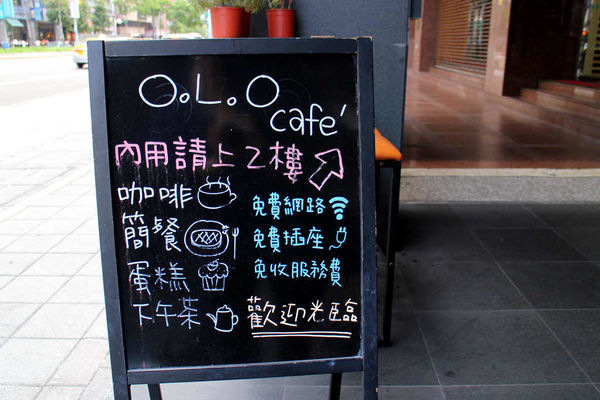 O.L.O
café
內用請上2樓
咖啡
簡餐
蛋糕
下午茶
免費網路
免費插座
免收服務費
歡迎光臨